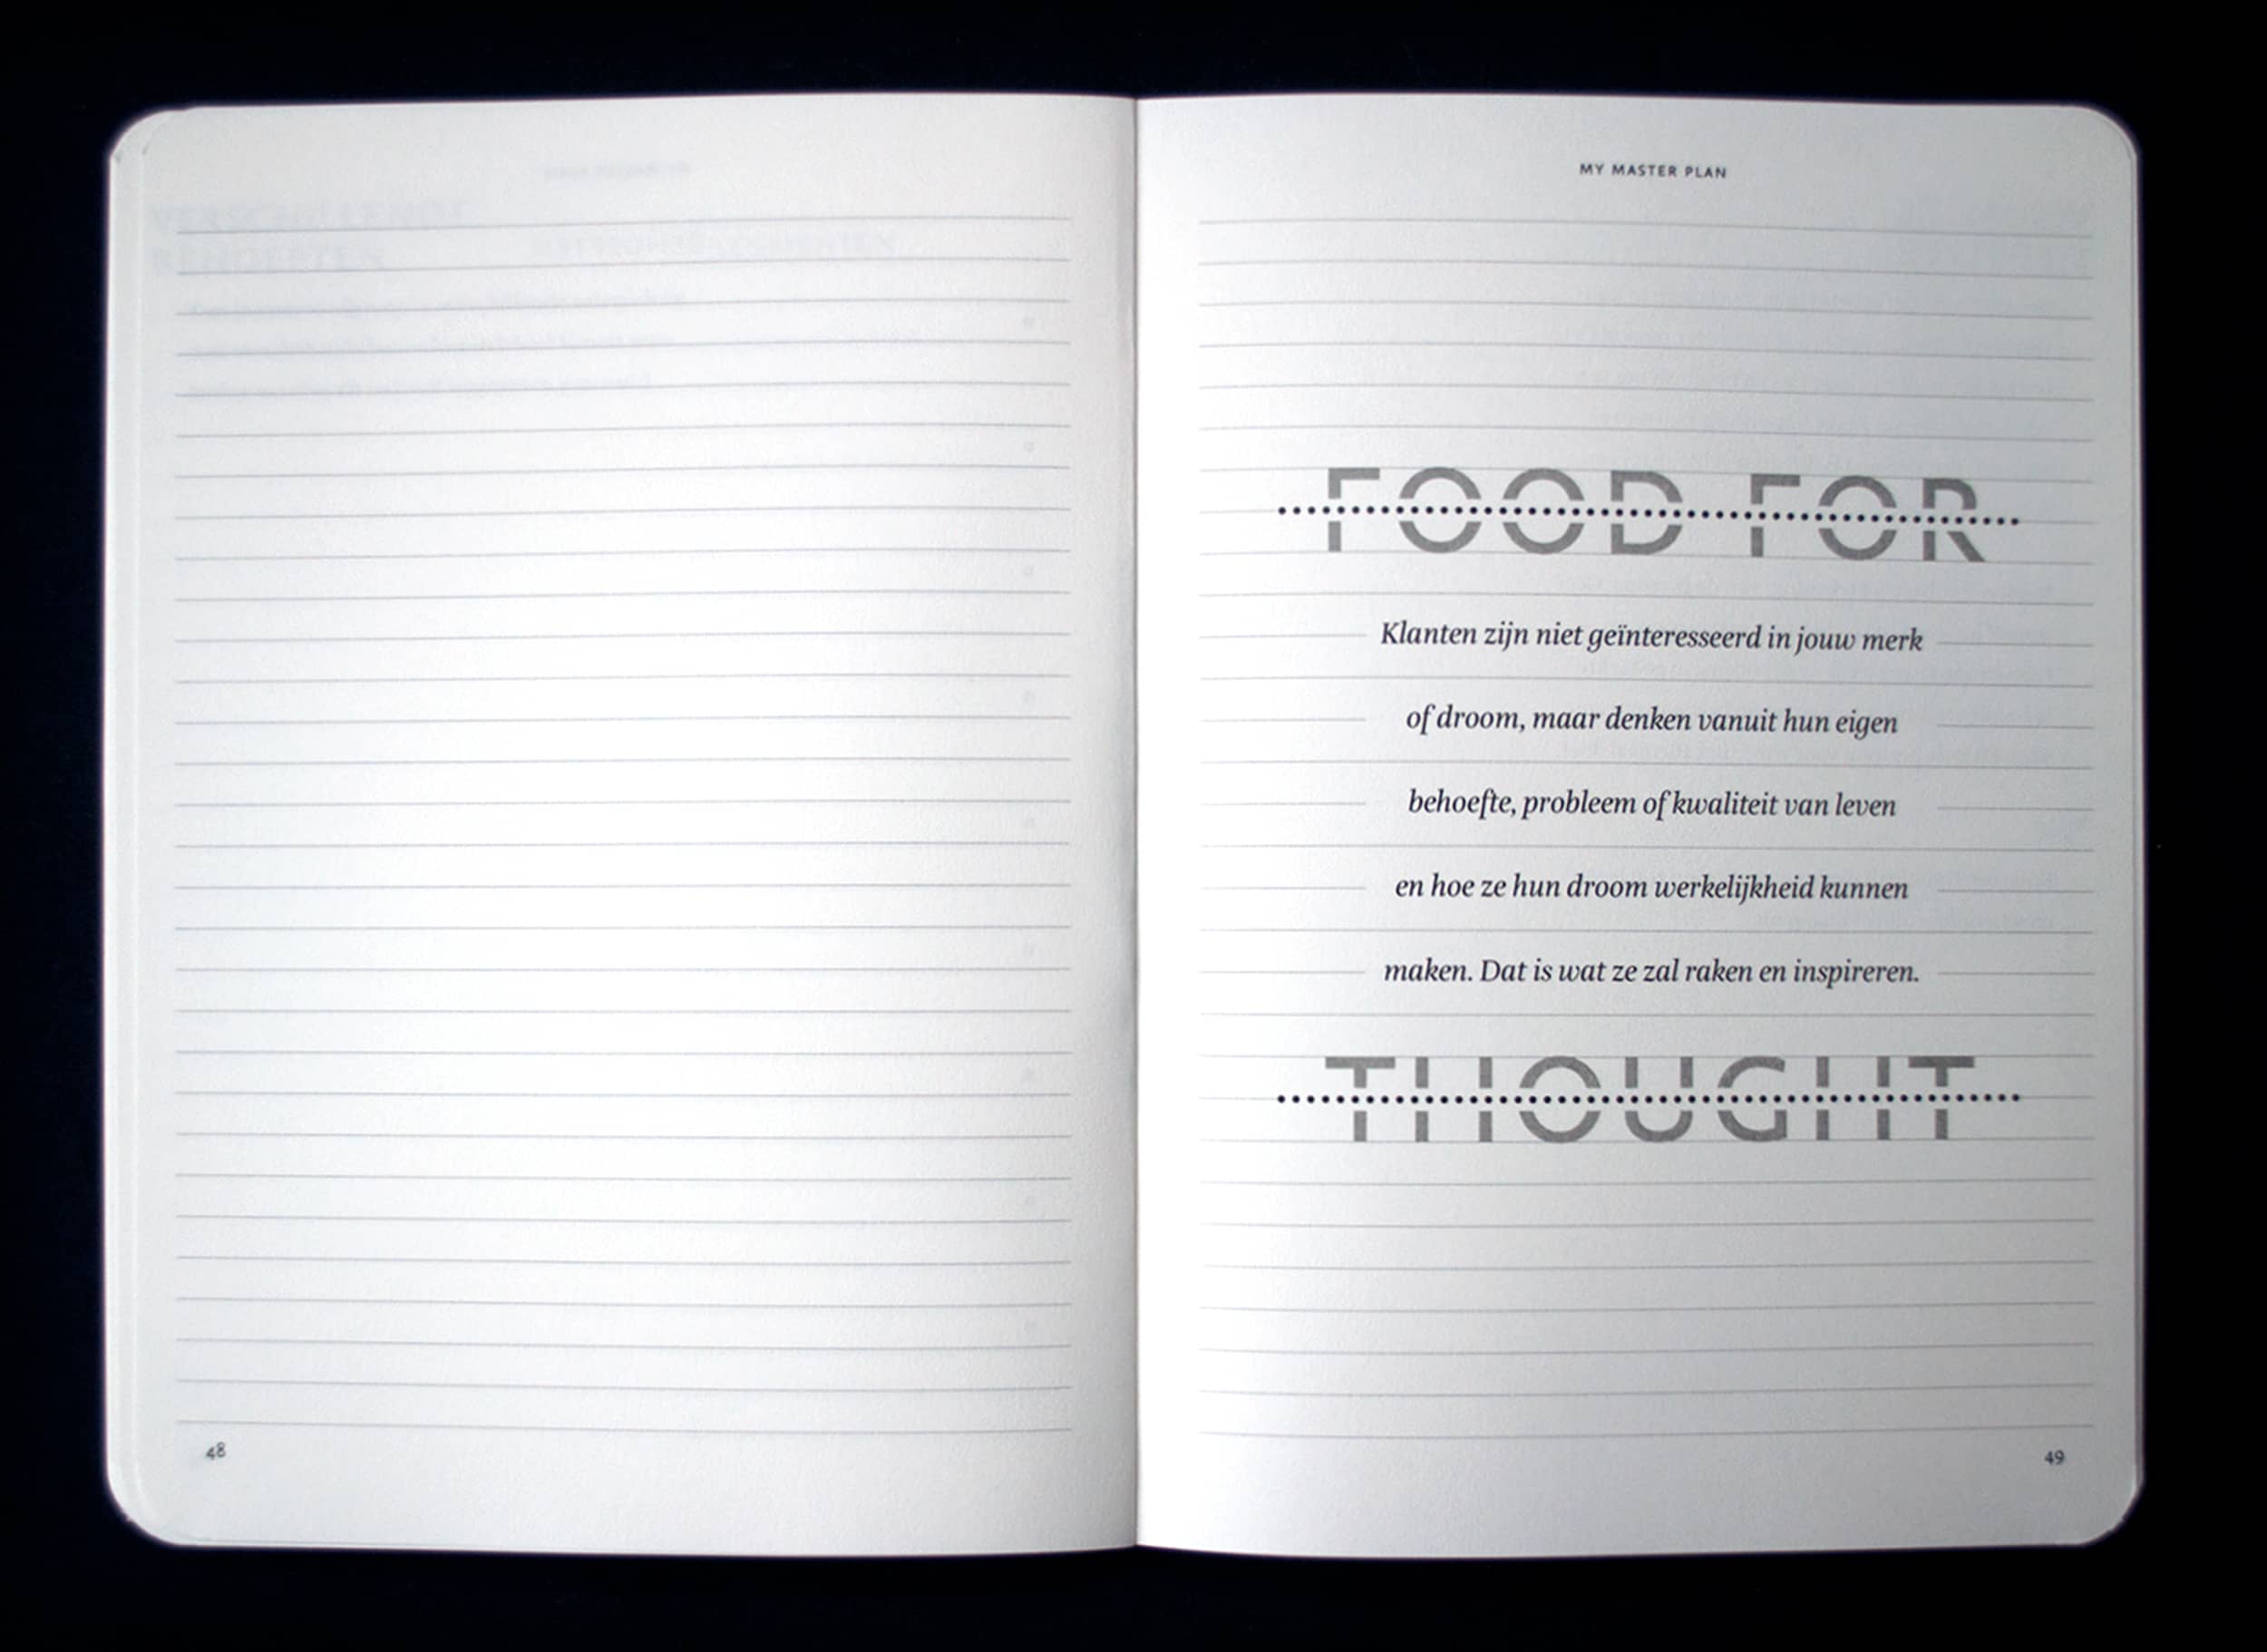 VERSCHILLENDE
BEHOEFTEN
48
MY MASTER PLAN
FOOD FOR
Klanten zijn niet geïnteresseerd in jouw merk
of droom, maar denken vanuit hun eigen
behoefte, probleem of kwaliteit van leven
en hoe ze hun droom werkelijkheid kunnen
maken. Dat is wat ze zal raken en inspireren.
THOUGHT
49